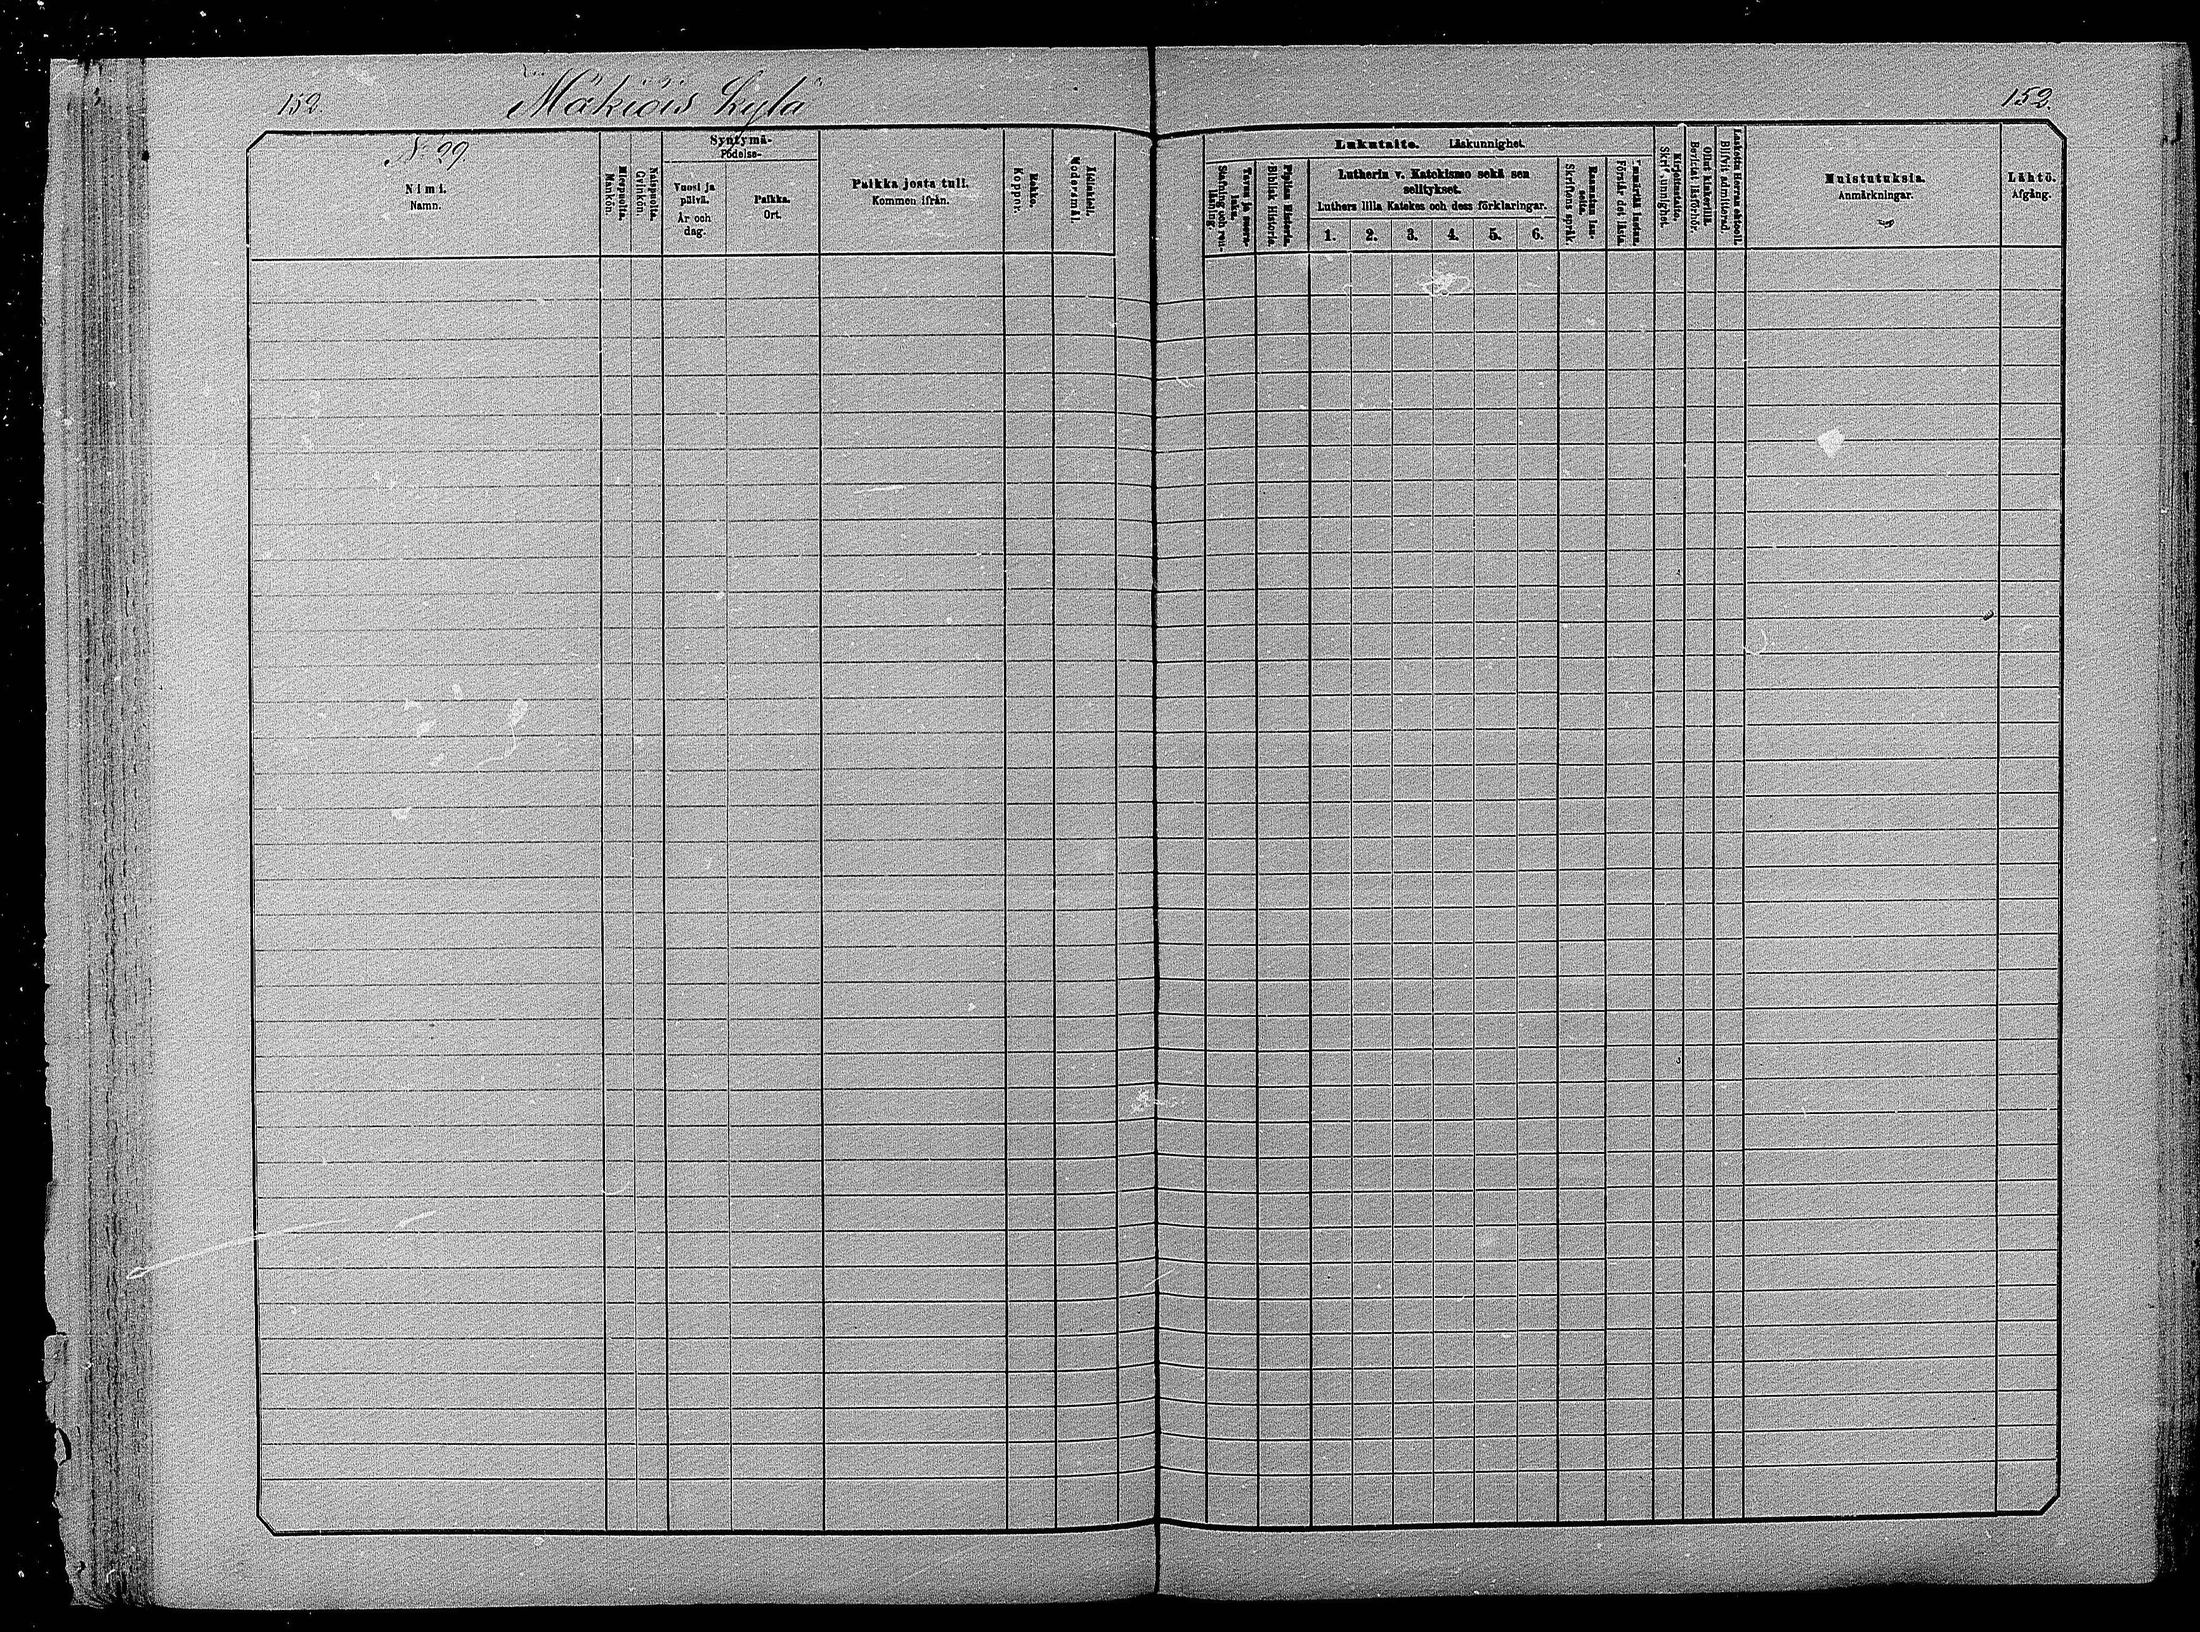 152.
Mäkiäis Kylä
152.
N:o 29.
Nimi.
Namn.
Miespuolia.
Mankön.
Naispuolia.
Qvinkön.
Syntymä-
Födelse-
Vuosi ja
päivä.
År och
dag.
Paikka.
Ort.
Paikka josta tuli.
Kommen ifrån.
Rokko.
Koppor.
Äitinkieli.
Modersmål.
Lukutaito. Läskunnighet.
Tavuu ja suora-
luku.
Stafning och ren-
läsning.
Piplian Historia.
Biblisk Historia.
Lutherin v. Katekismo sekä sen
selitykset.
Luthers lilla Katekes och dess förklaringar.
1. 2. 3. 4. 5. 6.
Raamatun lau-
seita.
Skriftens språk.
Ymmärtää lustan.
Förstår det lästa.
Kirjoitustaito.
Skrifkunnighet.
Ollut Kinkerillä.
Bevistat läsförhör.
Laskettu Herran ehtoolle.
Blifvit admitterad.
Muistutuksia.
Anmärkningar.
Lähtö.
Afgång.